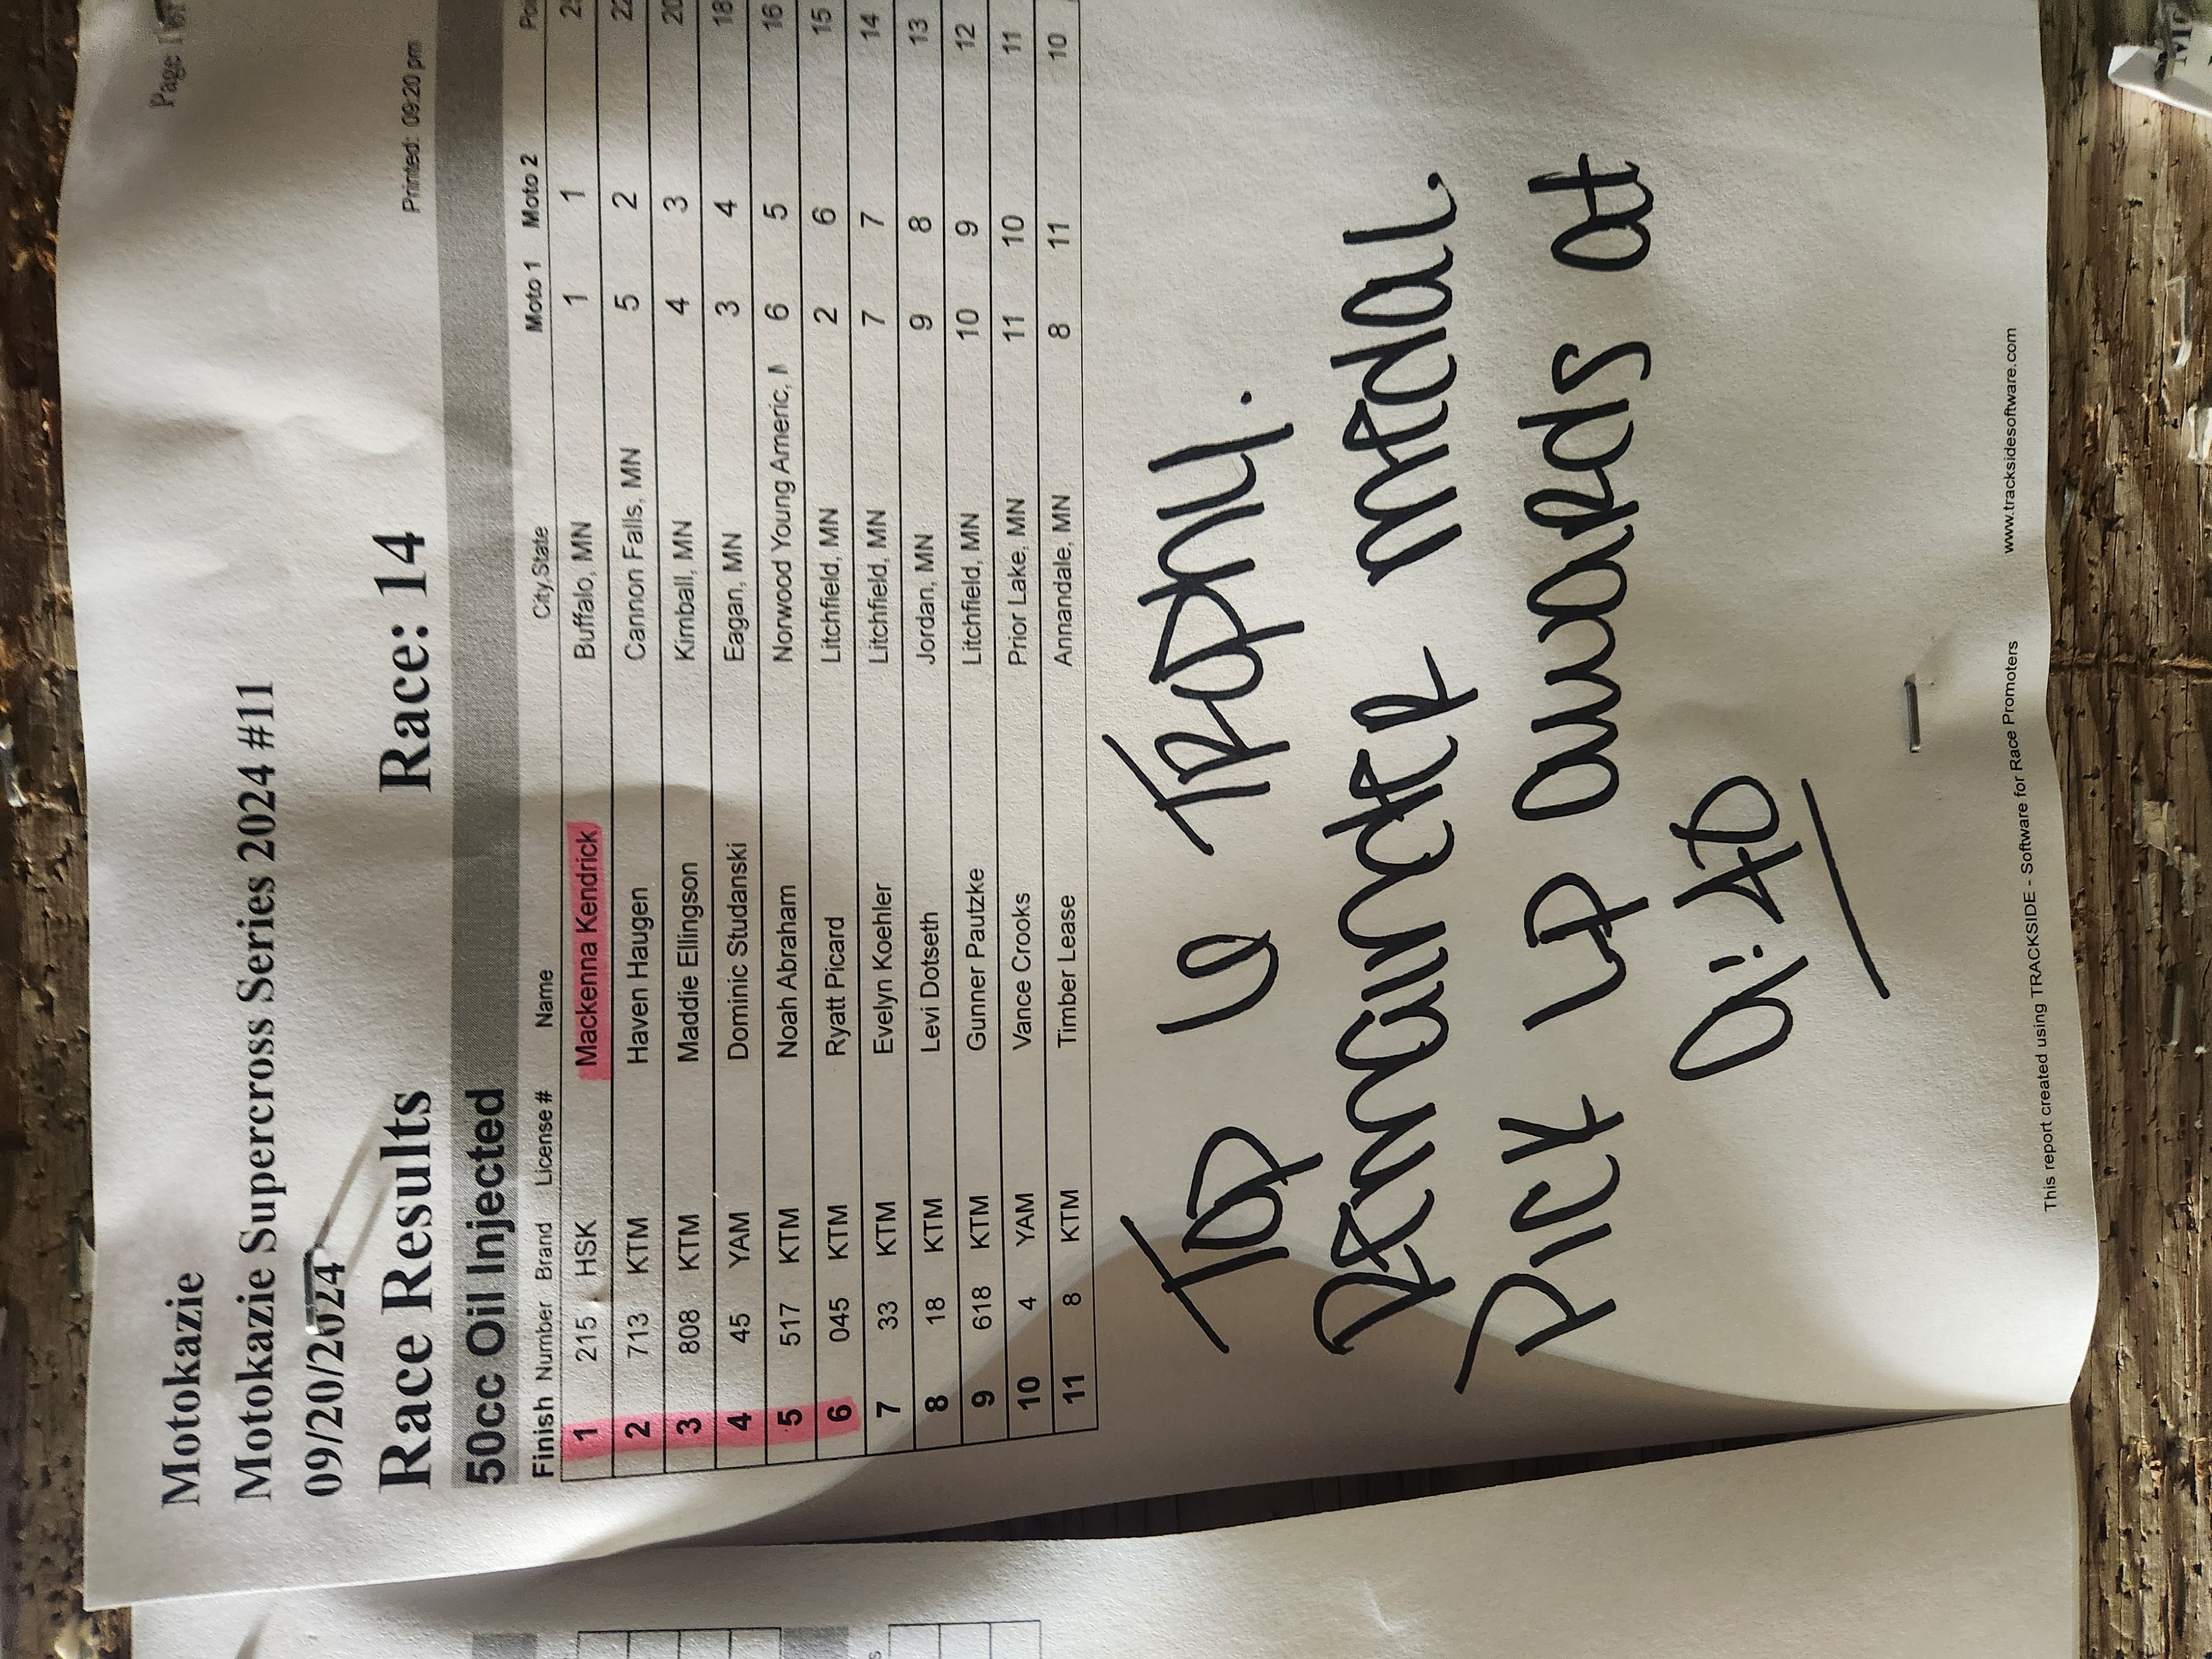 Page 1 of
Motokazie
Motokazie Supercross Series 2024 #11
09/20/2024
Printed: 09:20 pm
Race Results Race: 14
50cc Oil Injected
Finish Number Brand License # Name City,State Moto 1 Moto 2 Po
1 215 HSK Mackenna Kendrick Buffalo, MN 1 1 25
2 713 KTM Haven Haugen Cannon Falls, MN 5 2 22
3 808 KTM Maddie Ellingson Kimball, MN 4 3 20
4 45 YAM Dominic Studanski Eagan, MN 3 4 18
5 517 KTM Noah Abraham Norwood Young Americ, M 6 5 16
6 045 KTM Ryatt Picard Litchfield, MN 2 6 15
7 33 KTM Evelyn Koehler Litchfield, MN 7 7 14
8 18 KTM Levi Dotseth Jordan, MN 9 8 13
9 618 KTM Gunner Pautzke Litchfield, MN 10 9 12
10 4 YAM Vance Crooks Prior Lake, MN 11 10 11
11 8 KTM Timber Lease Annandale, MN 8 11 10
TOP 6 TROPHY.
REMAINDER MEDAL.
PICK UP AWARDS at
9:40
This report created using TRACKSIDE - Software for Race Promoters www.tracksidesoftware.com